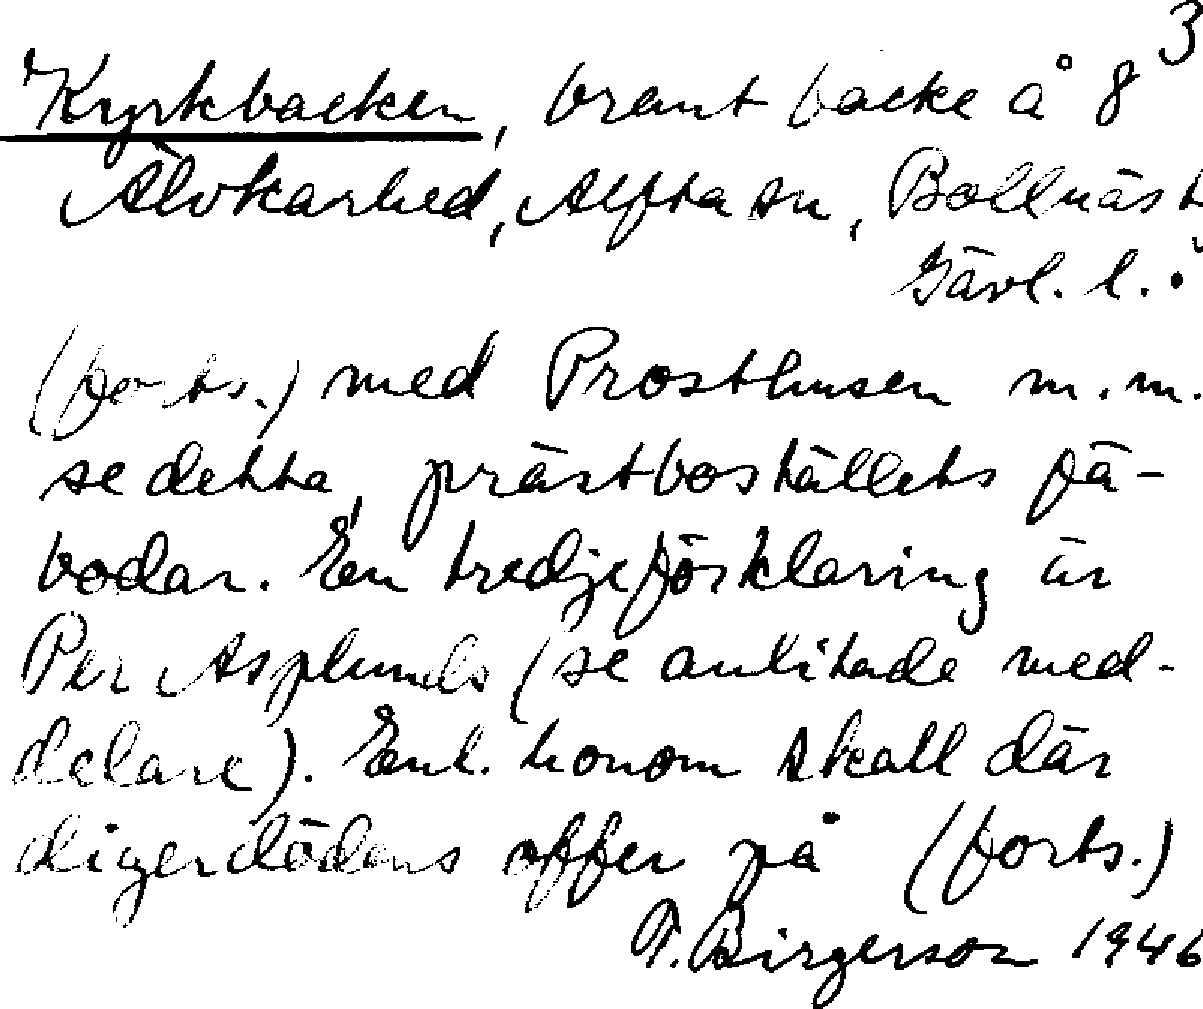 3
Kyrkbacken, brant backe å 8
Älvkarhed, Alfta sn, Bollnäs t
Gävl. l.
(forts.) med Prosthusen m.m.
se detta, prästboställets fä-
bodar. En tredje förklaring är
Per Asplunds (se anlitade med-
delare). Enl. honom skall där
digerdödens offer på (forts.)
F. Birgerson 1946